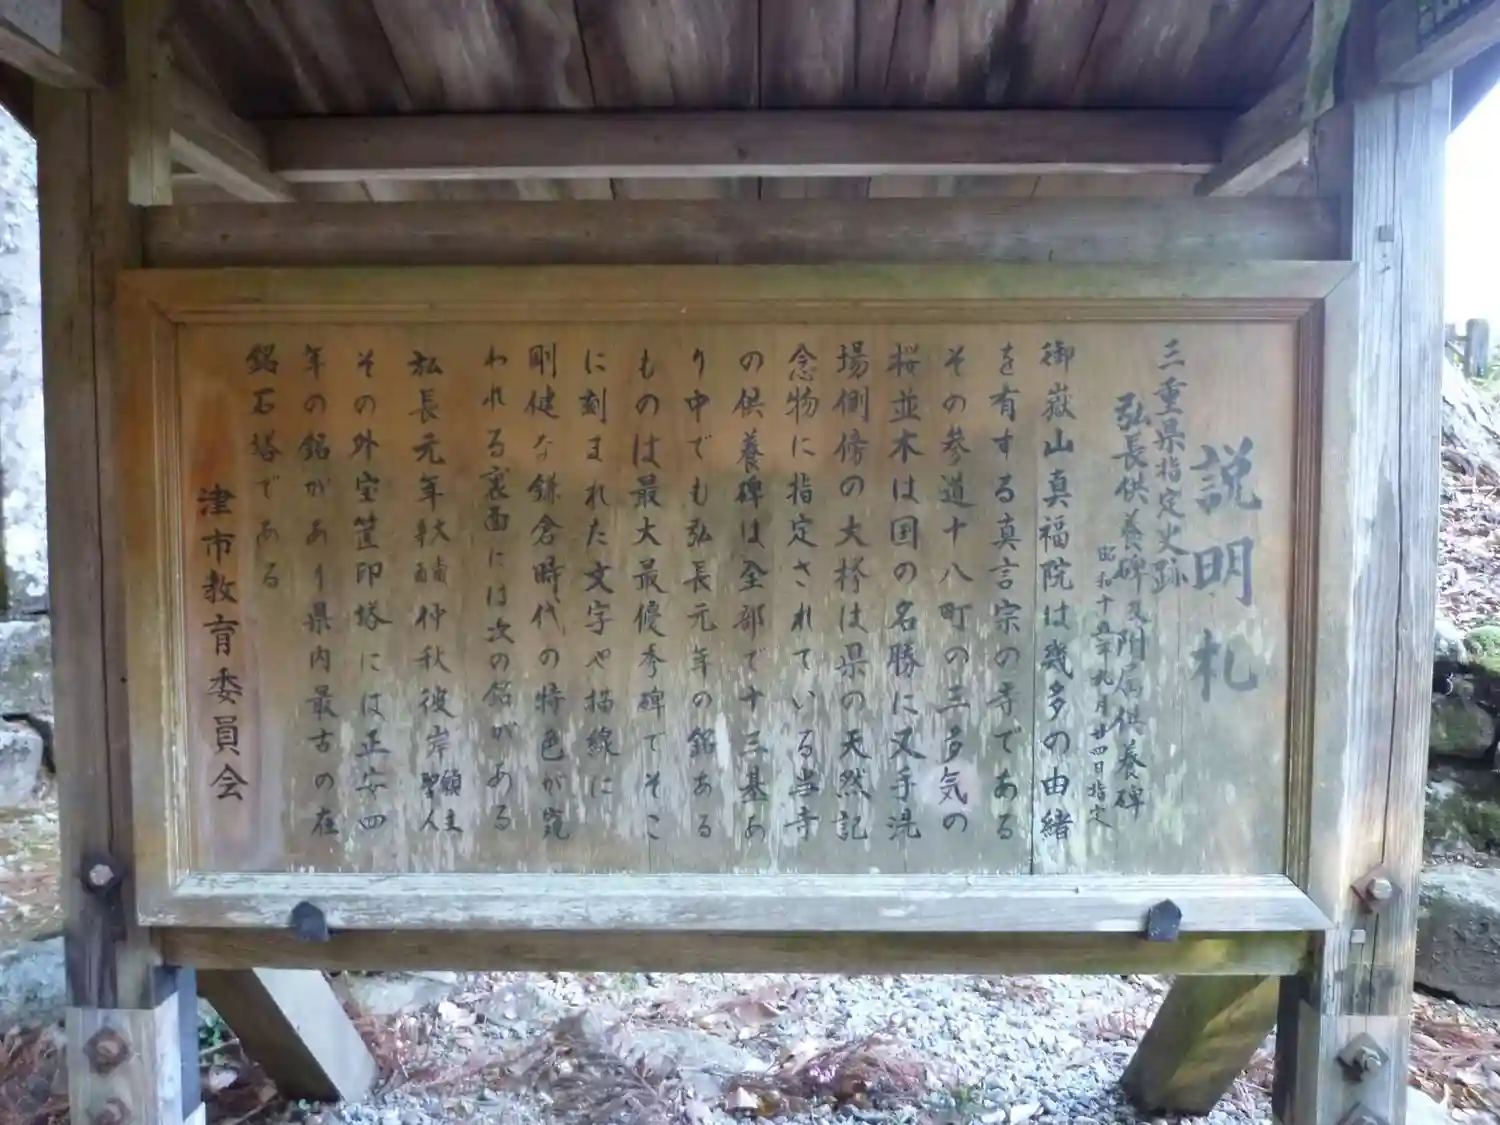 説明札
三重県指定史跡
弘長供養碑及附属供養碑
昭和十五年九月廿四日指定
御嶽山真福院は幾多の由緒
を有する真言宗の寺である
その参道十八町の三多気の
桜並木は国の名勝に又手洗
場側傍の大欅は県の天然記
念物に指定されている当寺
の供養碑は全部で十三基あ
り中でも弘長元年の銘ある
ものは最大最優秀碑でそこ
に刻まれた文字や描線に
剛健な鎌倉時代の特色が窺
われる裏面には次の銘がある
弘長元年 仲秋彼岸願主聖人
その外宝筐印塔には正安四
年の銘があり県内最古の在
銘石塔である
津市教育委員会